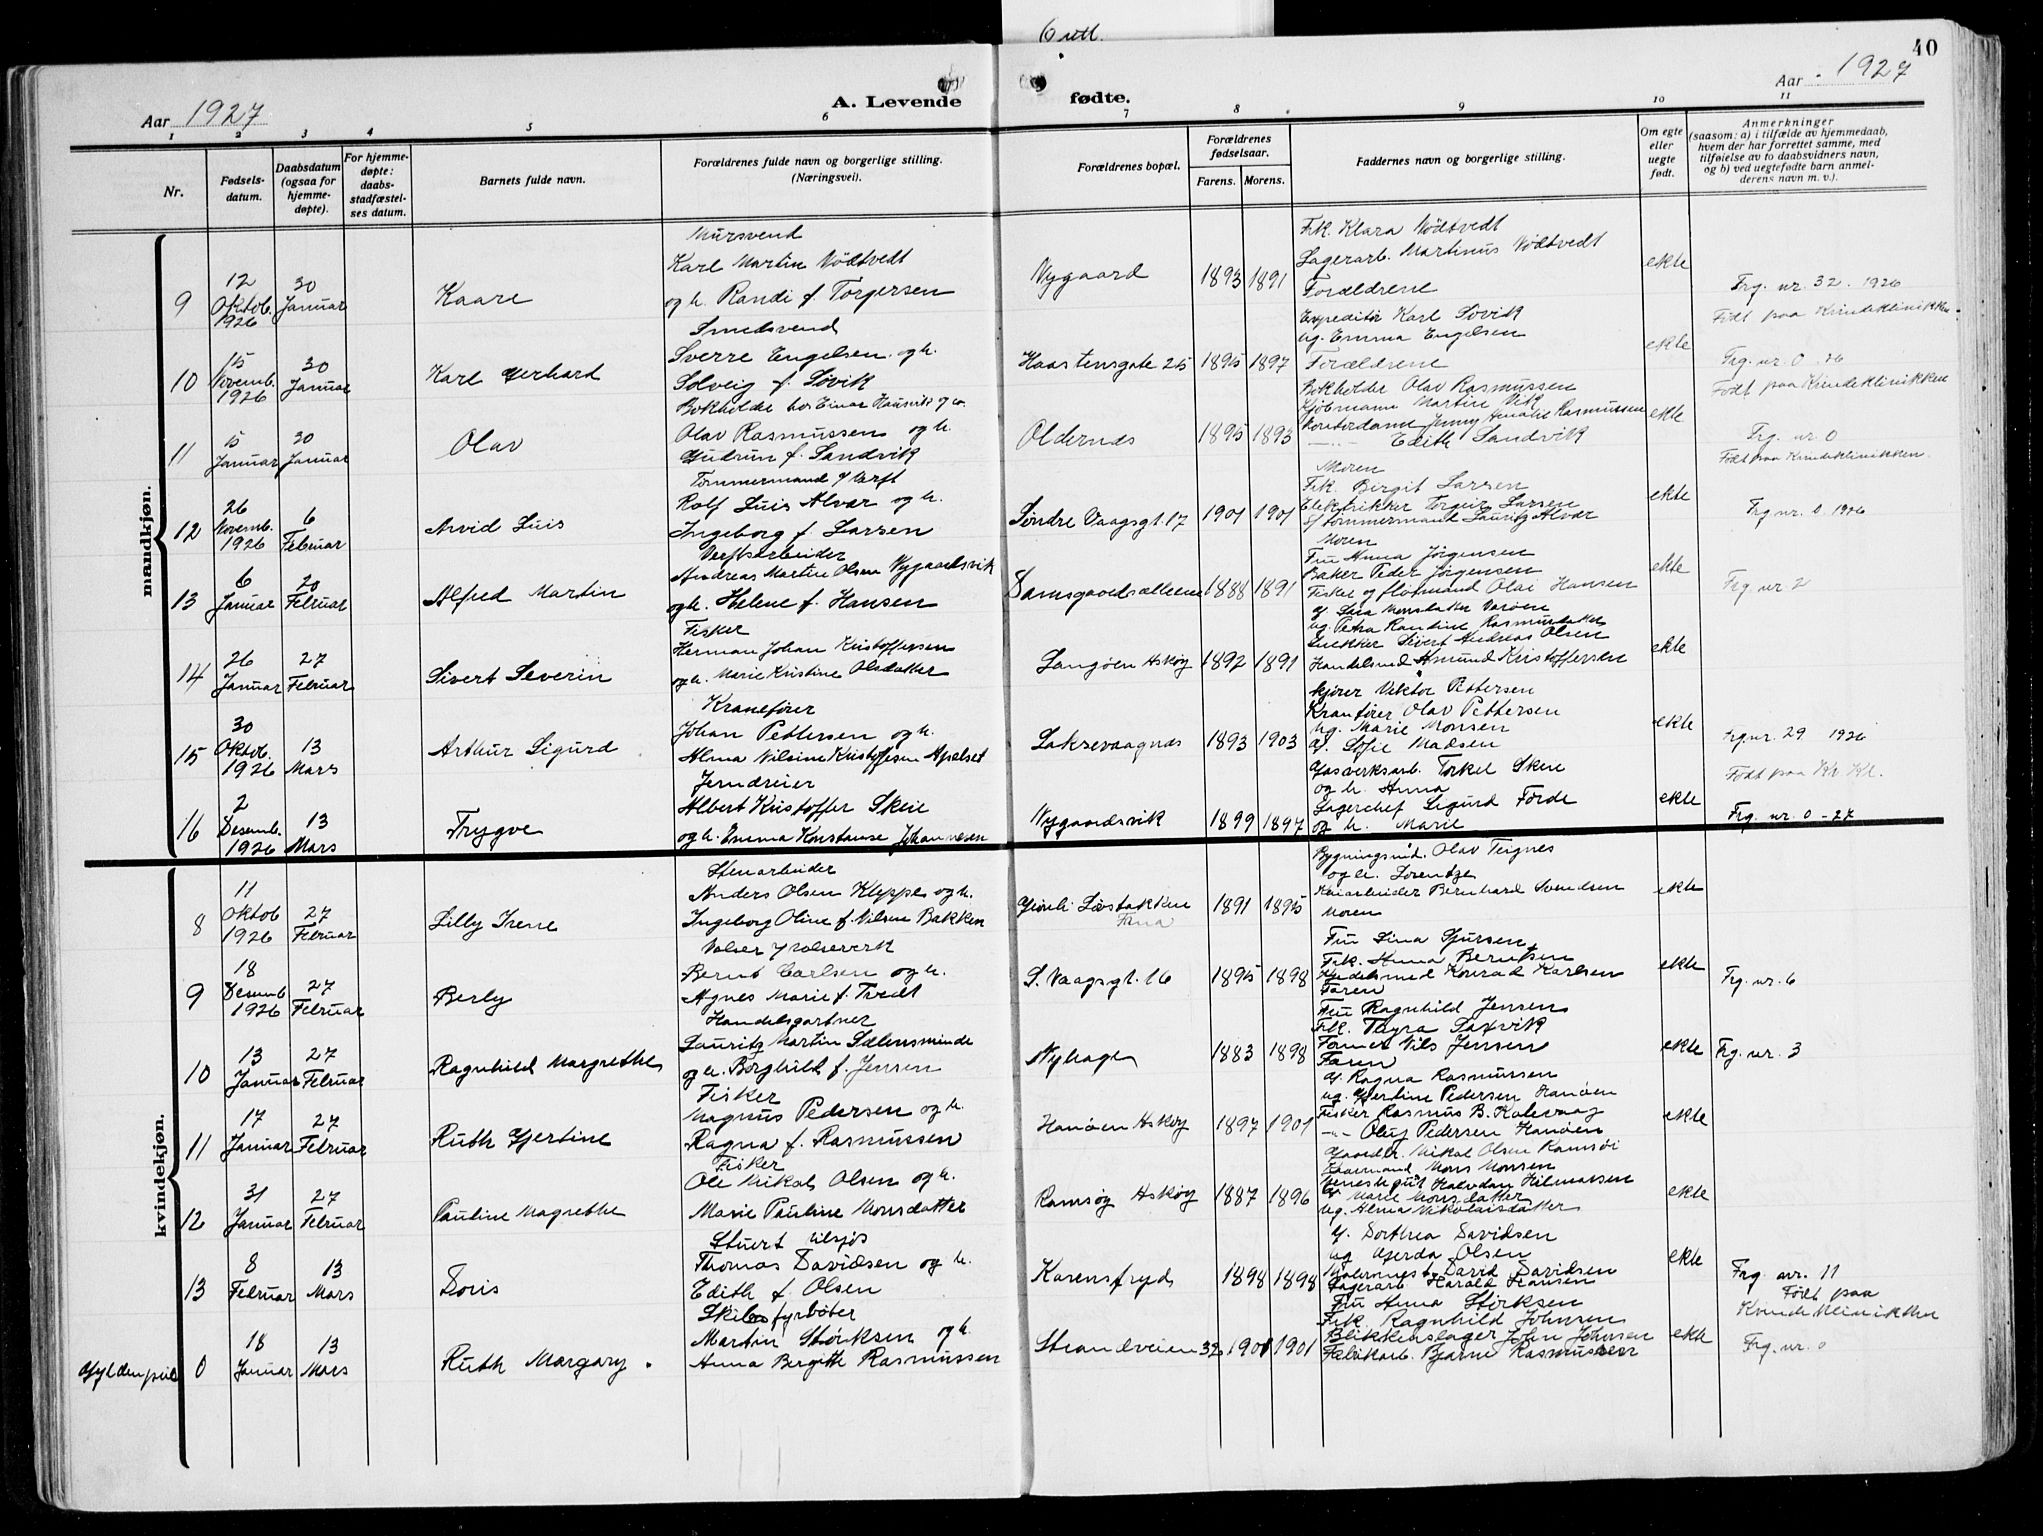 6 utl.
40
Aar 1927
A. Levende fødte.
Aar 1927
1 2 3 4 5 6 7 8 9 10 11
Nr.
Fødsels-
datum.
Daabsdatum
(ogsaa for
hjemme-
døpte).
For hjemme-
døpte:
daabs-
stadfæstel-
ses datum.
Barnets fulde navn.
Forældrenes fulde navn og borgerlige stilling.
(Næringsvei).
Forældrenes bopæl.
Forældrenes
fødselsaar.
Farens. Morens.
Faddernes navn og borgerlige stilling.
Om egte
eller
uegte
født.
Anmerkninger
(saasom: a) i tilfælde av hjemmedaab,
hvem der har forrettet samme, med
tilføielse av to daabsvidners navn,
og b) ved uegtefødte barn anmel-
derens navn m. v.).
mandkjøn.
9
12
Oktob.
1926
30
Januar
Kaare
Mursvend
Karl Martin Nödtvedt
og h. Randi f. Torgersen
Nygaard
1893 1891
Frk. Klara Nödtvedt
Lagerarb. Martinus Nödtvedt
Forældrene
ekte
Frg. nr. 32. 1926
Født paa Kvindeklinikken.
10
15
Novemb.
1926
30
Januar
Karl Gerhard
Smedsvend
Sverre Engelsen og h.
Solveig f. Søvik
Haastensgate 25
1895 1897
Expeditör Karl Søvik
ug. Emma Engelsen
Forældrene
ekte
Frg. nr. 0 26
Født paa Kvindeklinikken
11
15
Januar
30
Januar
Olav
Bokholder hos Einar
Olav Rasmussen og h.
Gudrun f. Sandvik
Oldernes
1895 1893
Bokholder Olav Rasmussen
Kjöbmann Martin Vik
Kontordame Jenny Amalie Rasmussen
—"— Edith Sandvik
ekte
Frg. nr. 0
Født paa Kvindeklinikken.
12
26
Novemb.
1926
6
Februar
Arvid Luis
Tömmermand
Rolf Luis Alvær og h.
Ingeborg f. Larsen
Søndre Vaagsgt. 17
1901 1901
Moren
Frk. Birgit Larsen
Elektrikker Torgeir Larsen
Tommermand Lauritz Alvær
ekte
Frg nr. 0. 1926
13
6
Januar
20
Februar
Alfred Martin
Verftsarbeider
Andreas Martin Olsen Nygaardsvik
og h. Helene f. Hansen
Damsgaardsalleen
1888 1891
Moren
Fru Anna Jörgensen
Baker Peder Jörgensen
Fisker og Olai Hansen
ekte
Frg. nr 2
14
26
Januar
27
Februar
Sivert Severin
Fisker
Herman Johan Kristoffersen
og h. Marie Kristine Olsdatter
Langøen Askøy
1892 1891
ug. Petra Rantine Rasmusdatter
Snekker Sivert Andreas Olsen
Handelsmd Amund Kristoffersen
ekte
15
30
Oktob.
1926
13
Mars
Arthur Sigurd
Kranefører
Johan Pettersen og h.
Alma Nilsine Kristoffersen Apelset
Laksevaagnes
1893 1903
kjörer Viktor Pettersen
Kranfører Olav Pettersen
ug. Marie Monsen
g. Sofie Madsen
ekte
Frg. nr. 29 1926
Født paa Kv. Kl.
16
2
Desemb.
1926
13
Mars
Trygve
Jerndreier
Albert Kristoffer Skeie
og h. Emma Konstanse Johannesen
Nygaardsvik
1899 1897
Gasverksarb. Torkel Skeie
og h. Anna
Lagerchef Sigurd Förde
og h. Marie
ekte
Frg. nr. 0 - 27
kvindekjøn.
8
11
Oktob
1926
27
Februar
Lilly Irene
Stenarbeider
Anders Olsen Kleppe og h.
Ingeborg Oline f. Nilsen Bakken
Løvstakken
Fana
1891 1895
Bygningsmd. Olav Teignes
og h. Lorentze
Kaiarbeider Bernhard Svendsen
Moren
ekte
9
18
Desemb
1926
27
Februar
Berly
Valser v/ valseverk
Bernt Carlsen og h.
Agnes Marie f. Tvedt
S. Vaagsgt. 16
1895 1898
Fru Lina Sjursen
Frk. Anna Berntsen
Handelsmd Konrad Karlsen
Faren
ekte
Frg. nr. 6
10
13
Januar
27
Februar
Ragnhild Margrethe
Handelsgartner
Lauritz Martin Sælensminde
og h. Borghild f. Jensen
Nyhagen
1883 1898
Fru Ragnhild Jensen
Frk. Thyra Saxvik
Former Nils Jensen
Faren
ekte
Frg. nr. 3
11
17
Januar
27
Februar
Ruth Gjertine
Fisker
Magnus Pedersen og h.
Ragna f. Rasmussen
Hanøen Askøy
1897 1901
g. Ragna Rasmussen
ug. Gjertine Pedersen Hanøen
Fisker Rasmus B. Kolevaag
—"— Oluf Pedersen Hanøen
ekte
12
31
Januar
27
Februar
Pauline Magrethe
Fisker
Ole Mikal Olsen og h.
Marie Pauline Monsdatter
Ramsøy Askøy
1887 1896
Gaardbr. Mikal Olsen Ramsöi
Mons Monsen
Halvdan Hilmarsen
g. Marie Monsdatter
ug. Alma Nikolaisdatter
ekte
13
8
Februar
13
Mars
Doris
Stuert tilsjös
Thomas Davidsen og h.
Edith f. Olsen
Karensfryd
1898 1898
g. Dorthea Davidsen
ug Gjerda Olsen
Malermester David Davidsen
Lagerarb. Harald Hansen
ekte
Frg. nr. 11
Født paa
Kvindeklinikken
Gyldenpris
0
18
Januar
13
Mars
Ruth Margary.
Skibsfyrbøter
Martin Störksen og h.
Anna Bergitte Rasmussen
Strandveien 32
1901 1901
Fru Anna Störksen
Frk. Ragnhild Johnsen
Blikkenslager John Johnsen
Fabrikarb. Bjarne Rasmussen
ekte
Frg. nr. 0